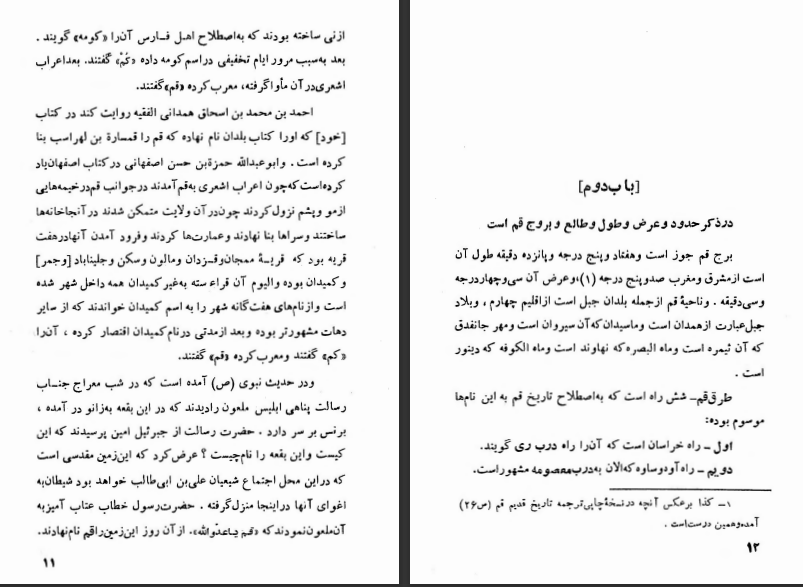 ازنی ساخته بودند که به‌اصطلاح اهل فارس آن‌را «کومه» گویند .
بعد به‌سبب مرور ایام تخفیفی دراسم کومه داده «کُمْ» گفتند. بعداعراب
اشعری‌در آن مأواگرفته، معرب کرده «قم»گفتند.
احمد بن محمد بن اسحاق همدانی الفقیه روایت کند در کتاب
[خود] که اورا کتاب بلدان نام نهاده که قم را قمسارة بن لهراسب بنا
کرده است . وابوعبدالله حمزةبن حسن اصفهانی درکتاب اصفهان‌یاد
کرده‌است‌که‌چون اعراب اشعری به‌قم‌آمدند درجوانب قم‌درخیمه‌هایی
ازمو وپشم نزول‌کردند چون‌درآن ولایت متمکن شدند درآنجاخانه‌ها
ساختند وسراها بنا نهادند وعمارت‌ها کردند وفرود آمدن آنهادرهفت
قریه بود که قریهٔ ممجان‌وقزدان ومالون وسکن وجلیناباد [وجمر]
وکمیدان بوده والیوم آن قراء سته به‌غیرکمیدان همه داخل شهر شده
است وازنام‌های هفت‌گانه شهر را به اسم کمیدان خواندند که از سایر
دهات مشهورتر بوده وبعد ازمدتی درنام‌کمیدان اقتصار کرده ، آن‌را
«کم» گفتند ومعرب‌کرده «قم» گفتند.
ودر حدیث نبوی (ص) آمده است که در شب معراج جناب
رسالت پناهی ابلیس ملعون رادیدند که در این بقعه به‌زانو در آمده ،
برنس بر سر دارد . حضرت رسالت از جبرئیل امین پرسیدند که این
کیست واین بقعه را نام‌چیست ؟ عرض‌کرد که این‌زمین مقدسی است
که دراین محل اجتماع شیعیان علی‌بن ابی‌طالب خواهد بود شیطان‌به
اغوای آنها دراینجا منزل‌گرفته . حضرت‌رسول خطاب عتاب آمیزبه
آن‌ملعون‌نمودندکه «قم یاعدّوالله». ازآن روز این‌زمین‌راقم نام‌نهادند.
۱۱
[باب‌دوم]
درذکر حدود وعرض وطول وطالع و بروج قم است
برج قم جوز است وهفتاد وپنج درجه وپانزده دقیقه طول آن
است ازمشرق ومغرب صدوپنج درجه (۱)،وعرض آن سی‌وچهاردرجه
وسی‌دقیقه . وناحیهٔ قم ازجمله بلدان جبل است ازاقلیم چهارم ، وبلاد
جبل‌عبارت ازهمدان است وماسیدان‌که‌آن سیروان است ومهر جانقدق
که آن ثیمره است وماه البصره‌که نهاوند است وماه الکوفه که دینور
است .
طرق‌قم– شش راه است که به‌اصطلاح تاریخ قم به این نام‌ها
موسوم بوده:
اول – راه خراسان است که آن‌را راه درب ری گویند.
دویم– راه‌آوه‌وساوه‌که‌الان به‌درب‌معصومه مشهوراست.
۱– کذا برعکس آنچه درنسخهٔ‌چاپی‌ترجمه تاریخ قدیم قم (ص۲۶)
آمده‌وهمین درست‌است .
۱۲